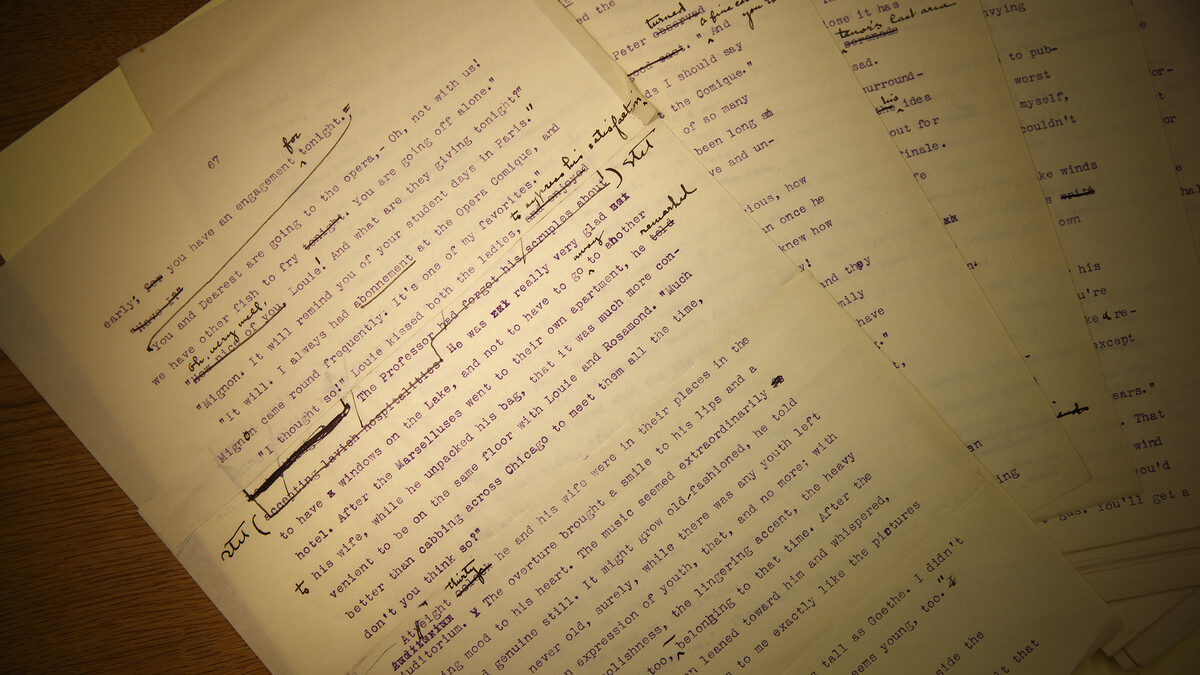 67
for
early; for you have an engagement tonight."
"Have we
"You and Dearest are going to the opera,- Oh, not with us!
we have other fish to fry tonight. You are going off alone."
oh very well
"How nice of you, Louie! And what are they giving tonight?"
"Mignon. It will remind you of your student days in Paris."
"It will. I always had abonnement at the Opera Comique, and
Mignon came round frequently. It's one of my favorites."
to express his satisfaction.
"I thought so!" Louie kissed both the ladies, and enjoyed
The Professor had forgot his scruples about) Stet
Stet (accepting lavish hospitalities. He was really very glad
away
to have windows on the Lake, and not to have to go to another
remarked
hotel. After the Marselluses went to their own apartment, he told
to his wife, while he unpacked his bag, that it was much more con-
venient to be on the same floor with Louie and Rosamond. "Much
better than cabbing across Chicago to meet them all the time,
don't you think so?"
thirty
At eight he and his wife were in their places in the
Auditorium
uditorium. The overture brought a smile to his lips and a
ing mood to his heart. The music seemed extraordinarily
genuine still. It might grow old-fashioned, he told
never old, surely, while there was any youth left
n expression of youth, that, and no more; with
olishness, the lingering accent, the heavy
too, belonging to that time. After the
n leaned toward him and whispered,
to me exactly like the pictures
tall as Goethe. I didn't
eems young, too."
side the
t that
ed the
turned
Peter observed
a fine
you
" And
ds I should say
the Comique."
of so many
been long
ve and un-
ious, how
n once he
knew how
y!
and they
mily
have
."
lose it has
tenor's last area
serenade
sad.
urround-
his
idea
out for
inale.
fe
n.
en
ing
vying
to pub-
worst
myself,
couldn't
ke winds
s spite
own
his
u're
ke a re-
except
ears."
That
wind
you'd
gus. You'll get a
or-